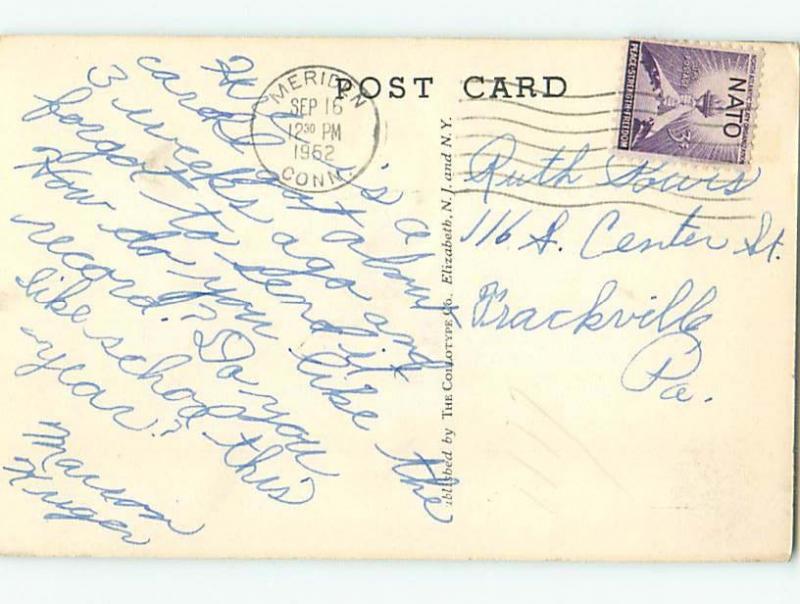 POST CARD
MERIDEN
SEP 16
12 30 PM
1952
CONN.
U.S. POSTAGE
3¢
NATO
NORTH ATLANTIC TREATY ORGANIZATION
PEACE-STRENGTH-FREEDOM
is a
card about
3 weeks ago and
forgot to send it
How do you like the
record? Do you
like school this
year?
Marion
Kruger
Ruth
116 S. Center St.
Frackville
Pa.
ublished by THE COLLOTYPE CO. Elizabeth, N. J. and N. Y.